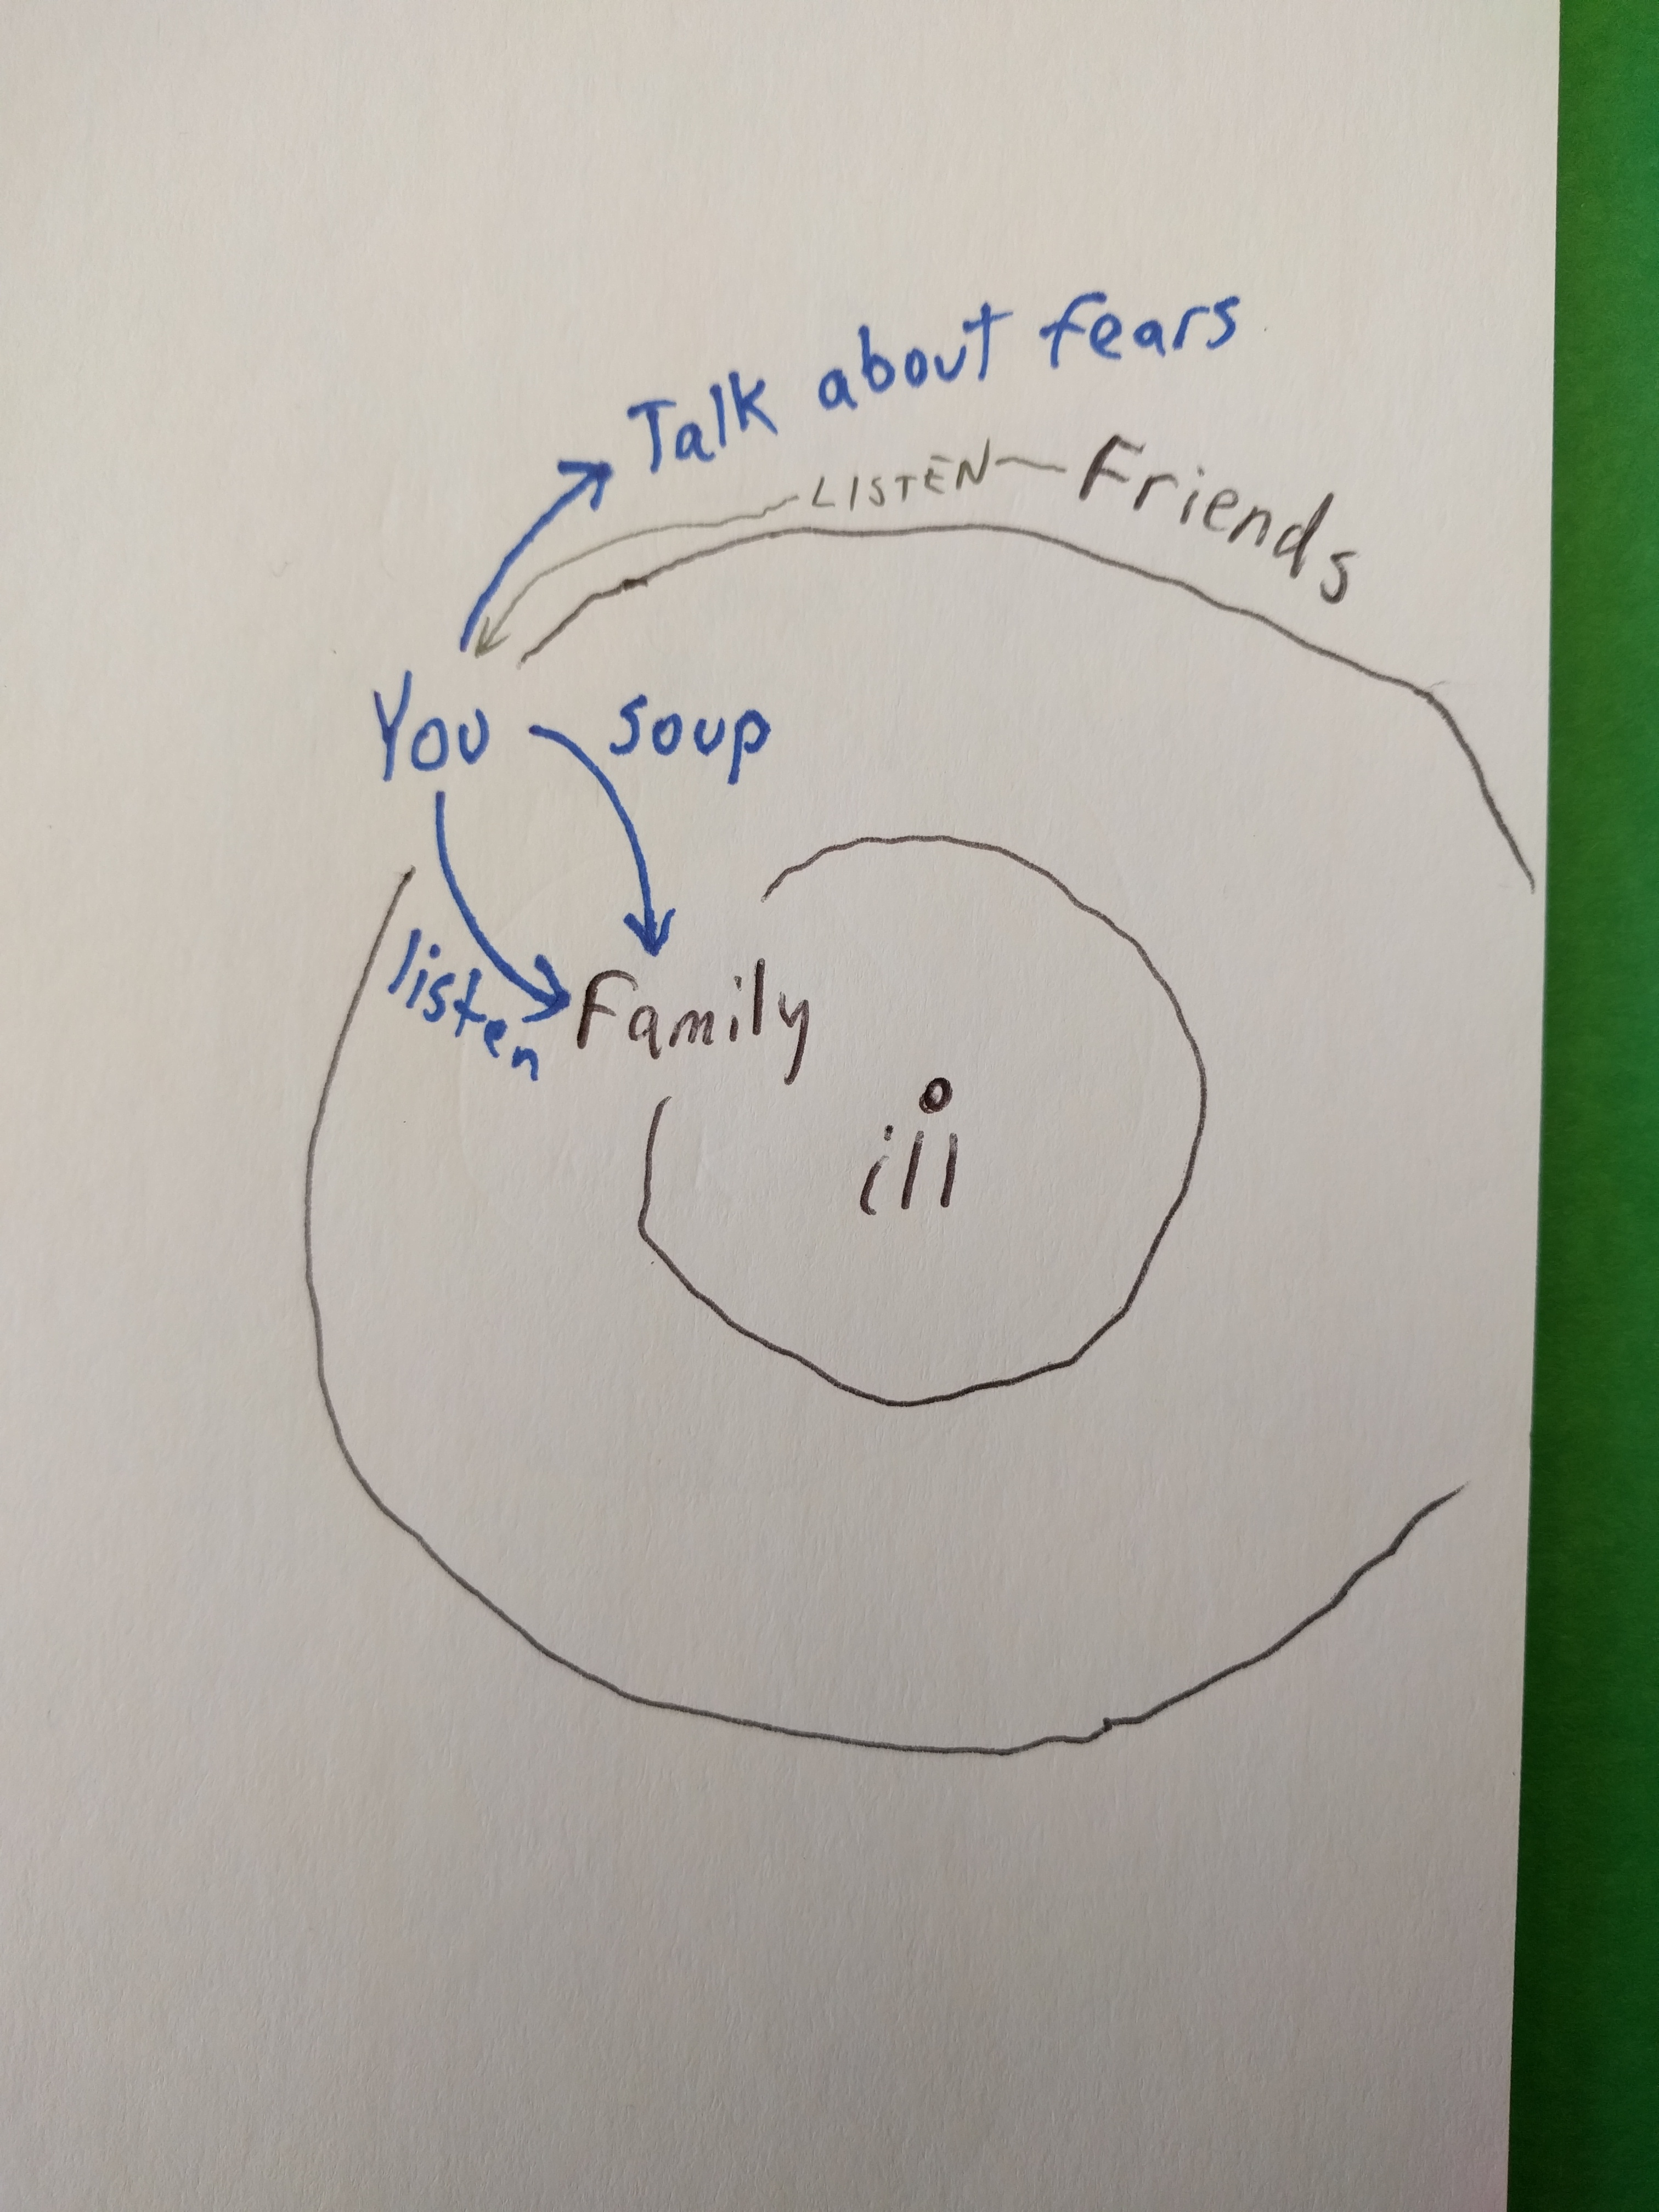 Talk about fears
LISTEN
Friends
You
soup
listen
Family
ill